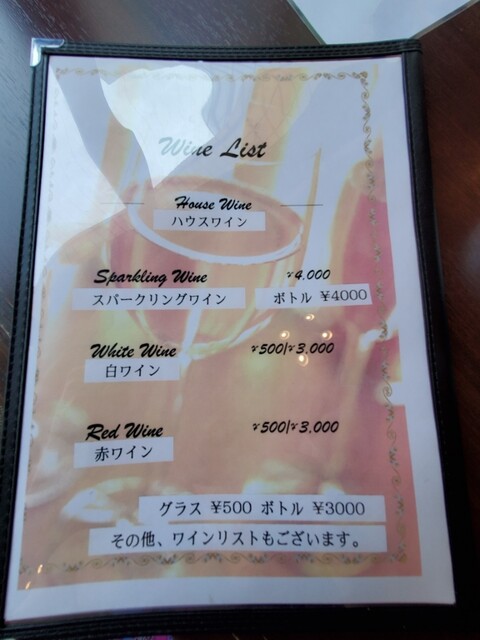 Wine List
House Wine
ハウスワイン
Sparkling Wine ¥4,000
スパークリングワイン ボトル ¥4000
White Wine ¥500/¥3,000
白ワイン
Red Wine ¥500/¥3,000
赤ワイン
グラス ¥500 ボトル ¥3000
その他、ワインリストもございます。